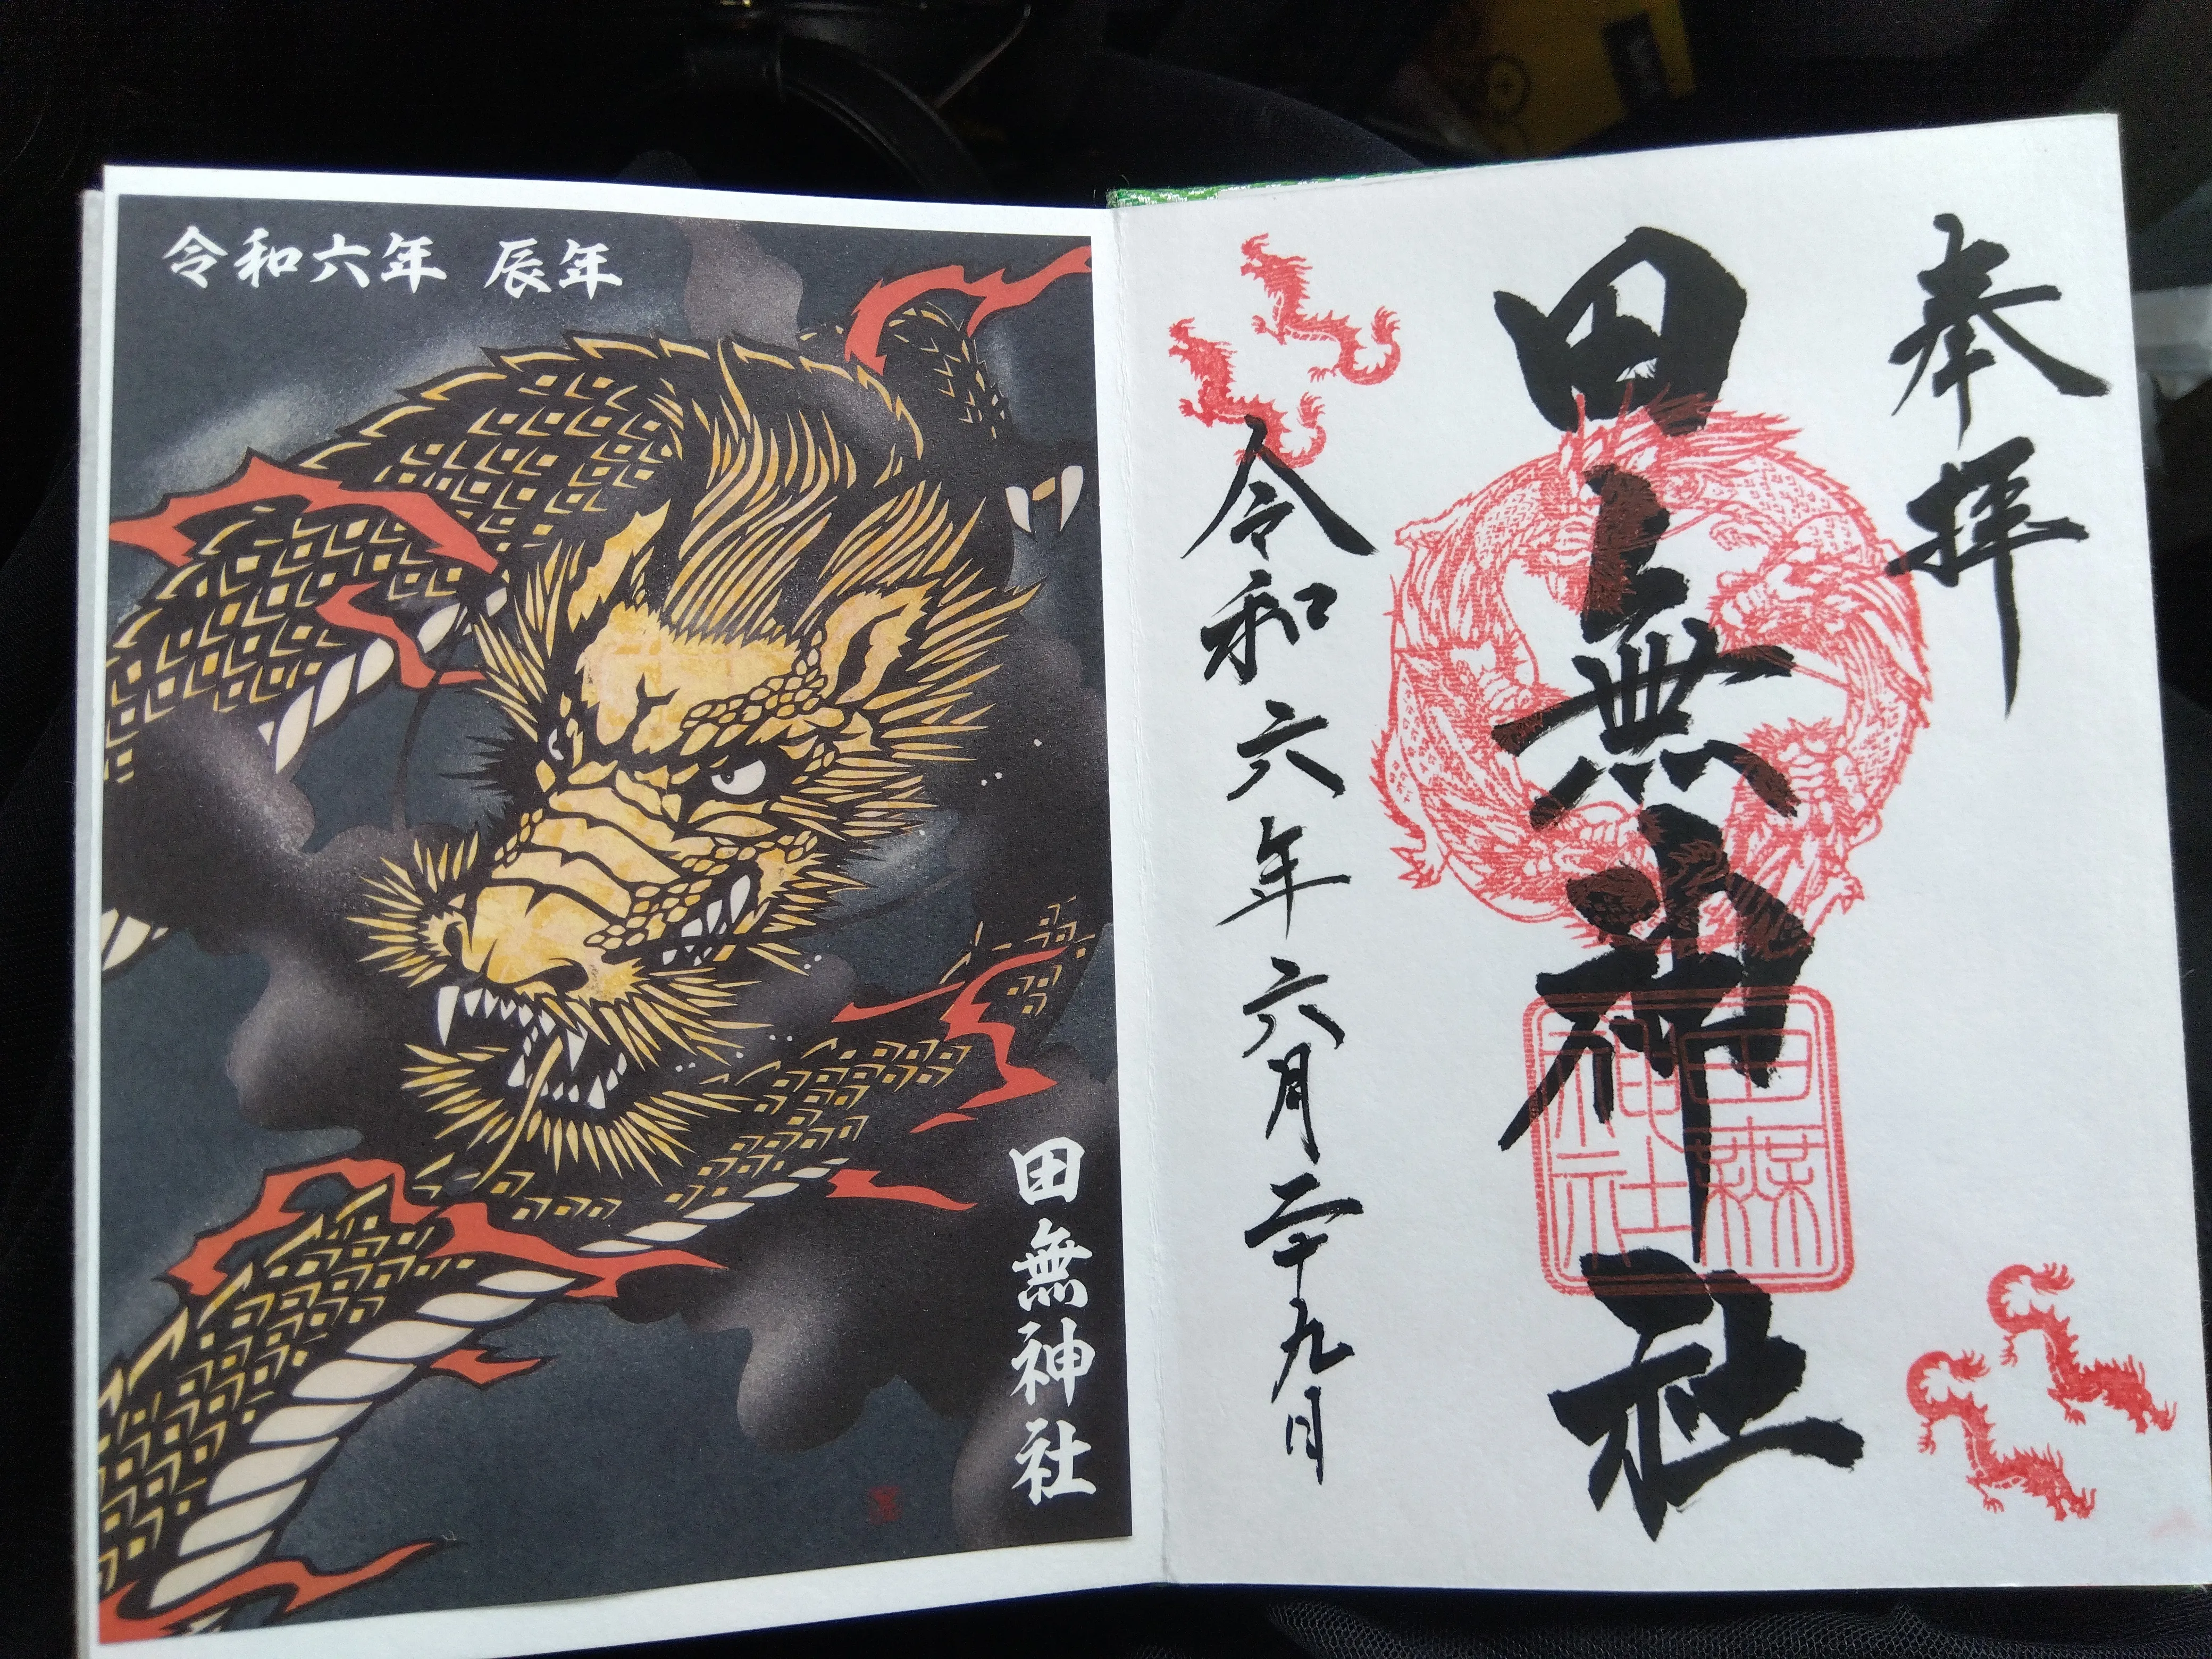 令和六年 辰年
田無神社
奉拝
田無神社
田無神社
令和六年六月二十九日